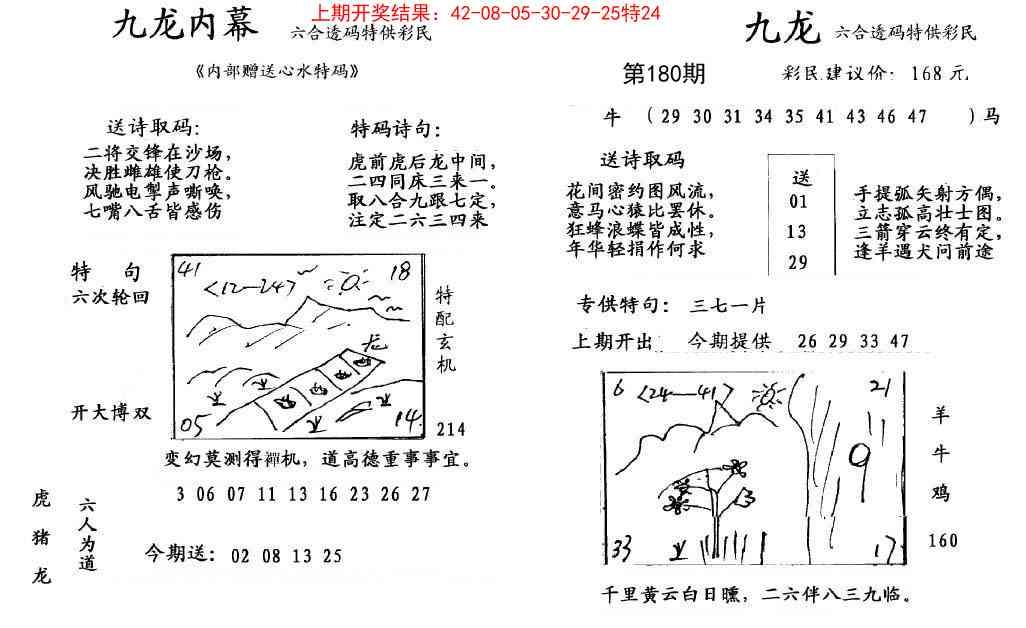 上期开奖结果：42-08-05-30-29-25特24
九龙内幕 六合透码特供彩民
《内部赠送心水特码》
送诗取码：
二将交锋在沙场，
决胜雌雄使刀枪。
风驰电掣声嘶唤，
七嘴八舌皆感伤
特码诗句：
虎前虎后龙中间，
二四同床三来一。
取八合九跟七定，
注定二六三四来
特 句
六次轮回
开大博双
41
18
<12—24>
龙
05
14
特配玄机
214
变幻莫测得禅机，道高德重事事宜。
3 06 07 11 13 16 23 26 27
虎猪龙
六人为道
今期送：02 08 13 25
九龙 六合透码特供彩民
第180期
彩民建议价：168元
牛 （29 30 31 34 35 41 43 46 47 ）马
送诗取码
花间密约图风流，
意马心猿比罢休。
狂蜂浪蝶皆成性，
年华轻捐作何求
送
01
13
29
手提弧矢射方偶，
立志孤高壮士图。
三箭穿云终有定，
逢羊遇犬问前途
专供特句：三七一片
上期开出 今期提供 26 29 33 47
6
<24—41>
21
9
33
17
羊牛鸡
160
千里黄云白日曛，二六伴八三九临。